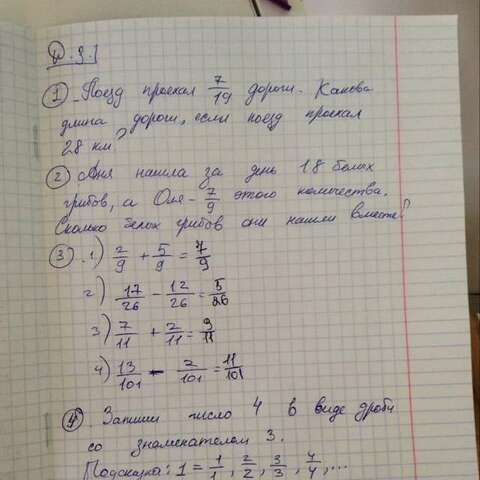 9.1
① Поезд проехал 7/19 дороги. Какова
длина дороги, если поезд проехал
28 км?
② Аня нашла за день 18 белых
грибов, а Оля - 7/9 этого количества.
Сколько белых грибов они нашли вместе?
③ 1) 2/9 + 5/9 = 7/9
2) 17/26 - 12/26 = 5/26
3) 7/11 + 2/11 = 9/11
4) 13/101 - 2/101 = 11/101
④ Запиши число 4 в виде дроби
со знаменателем 3.
Подсказка: 1 = 1/1, 2/2, 3/3, 4/4, ...